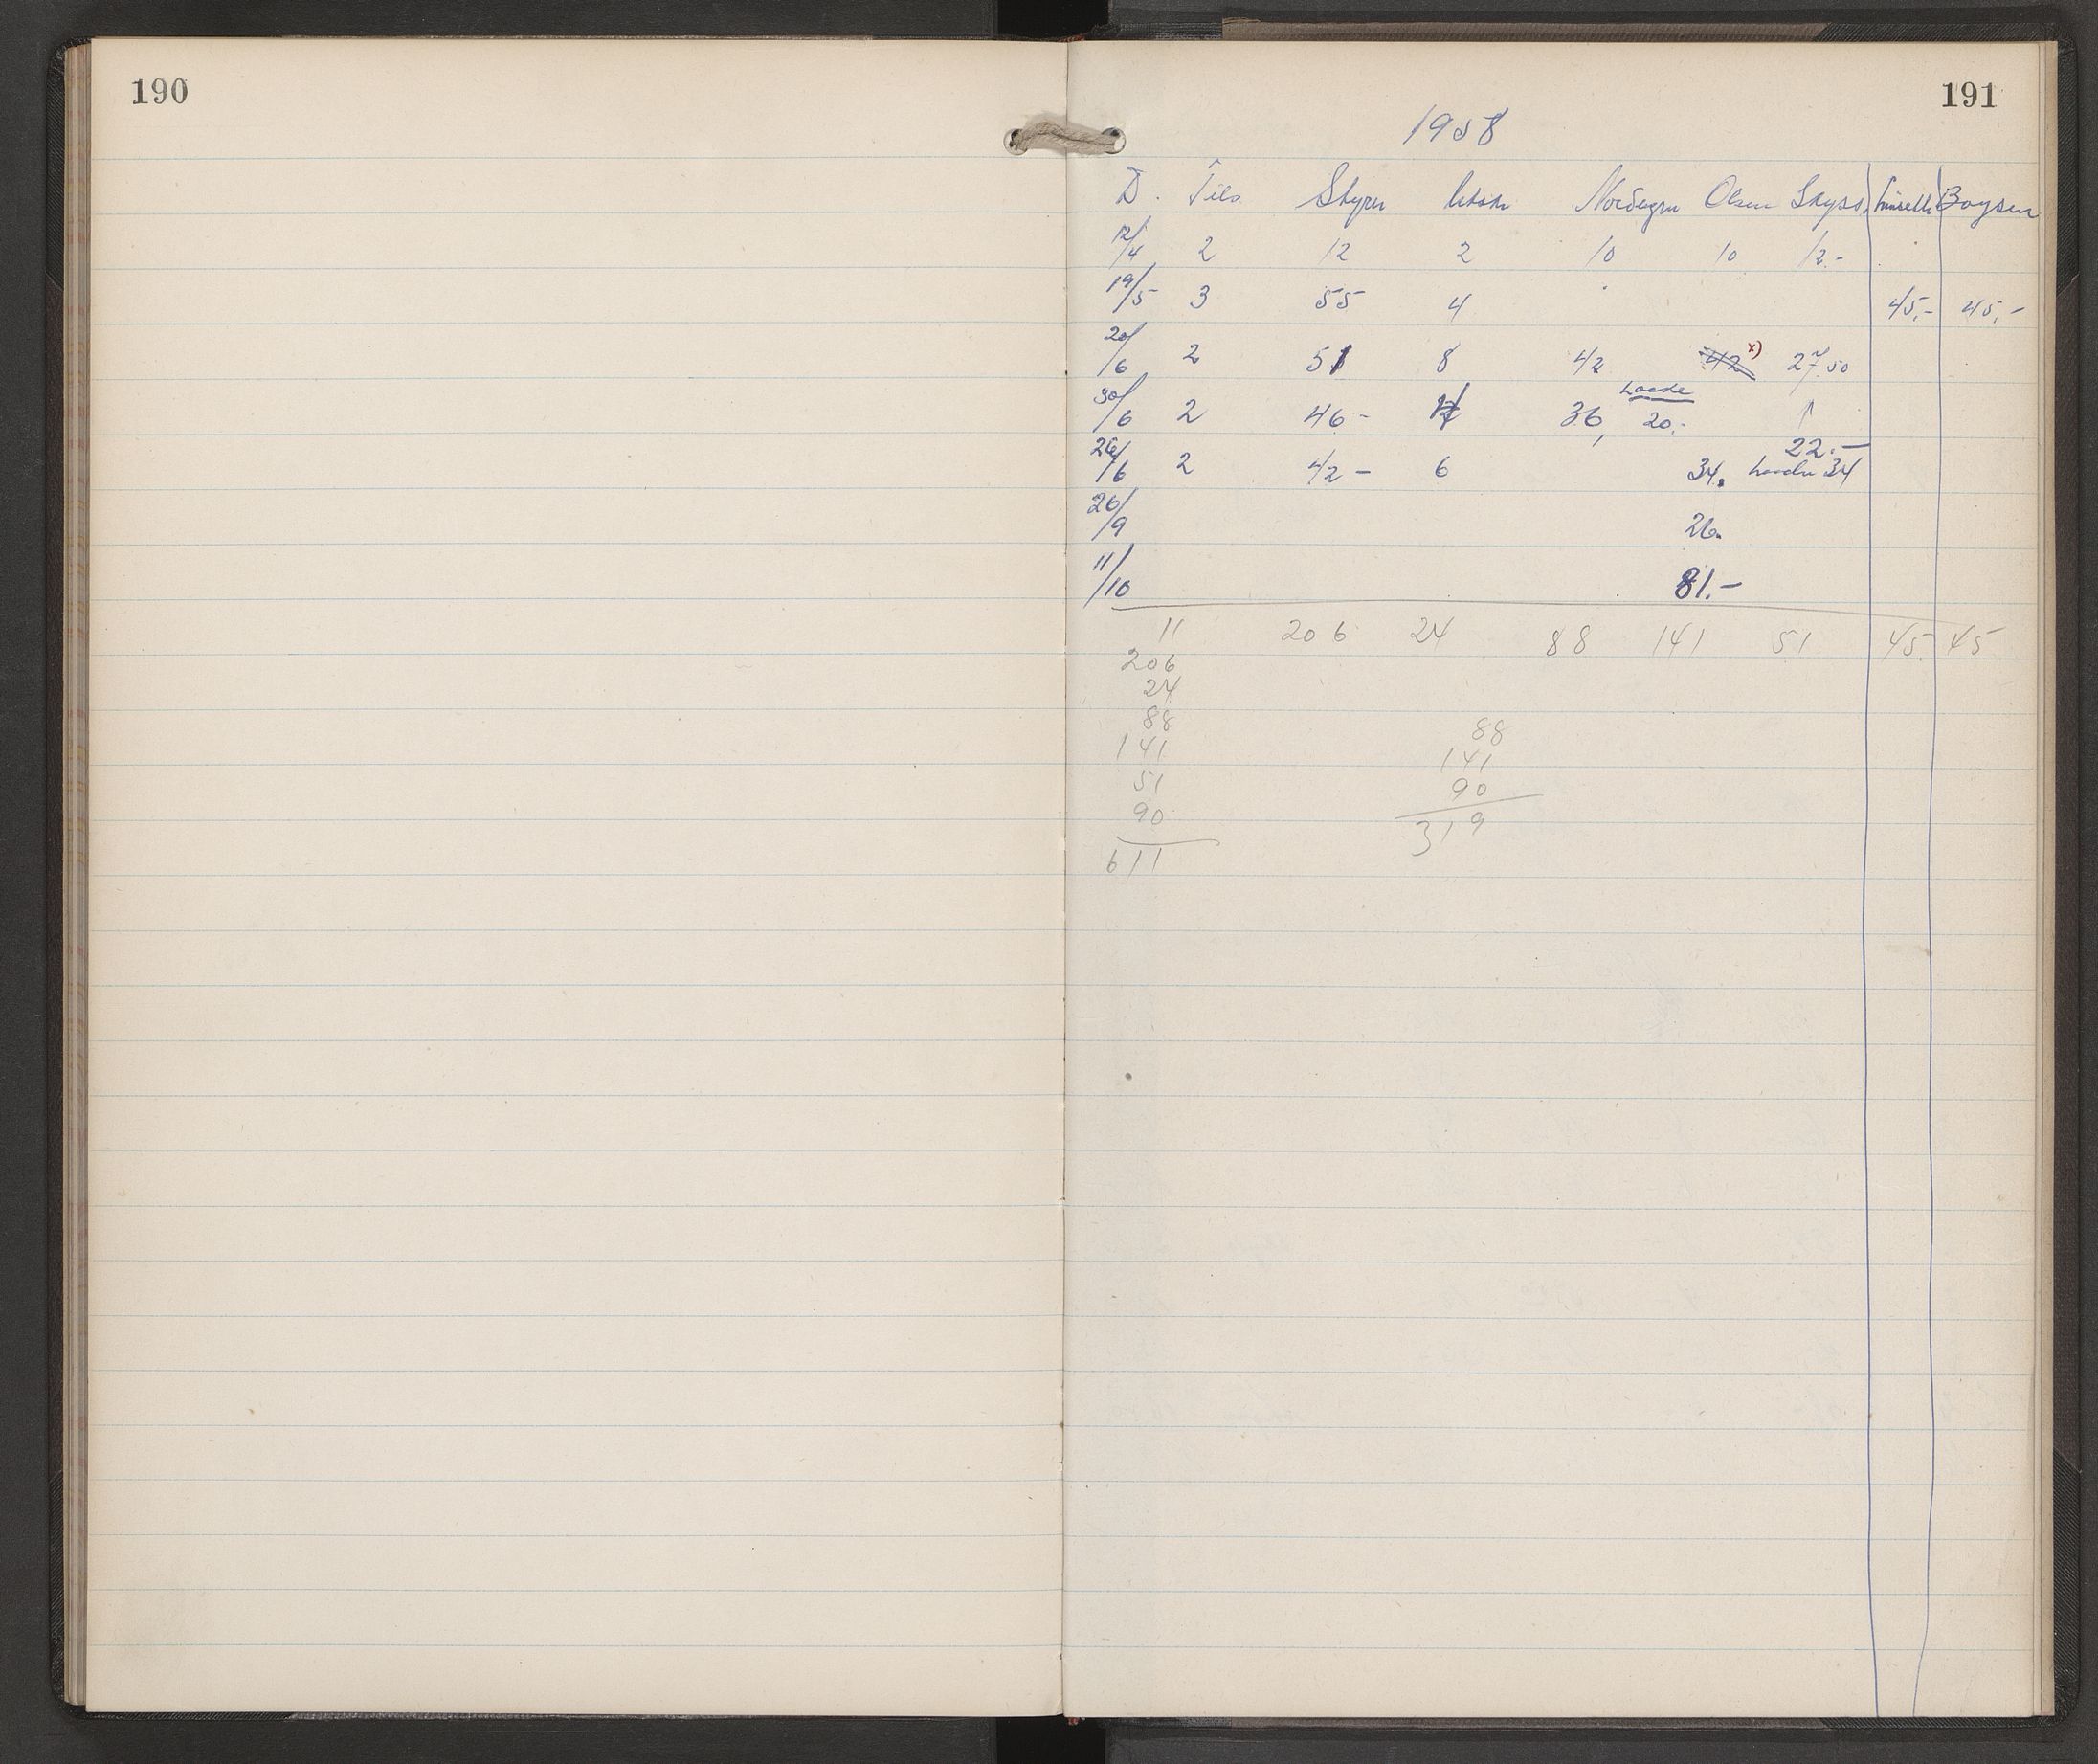 190
191
1958
D. Tils. Styrer Nordegru Olsen Skyss. Boysen
12/4 2 12 2 10 10 12.-
19/5 3 55 4 45,- 45,-
20/6 2 51 8 42 42 x) 27,50
30/6 2 46- 36, 20.-
22.-
26/6 2 42- 6 34. 34
26/9 26.
11/10 81.-
11 206 24 88 141 51 45 45
206
24
88
141
51
90
611
88
141
90
319